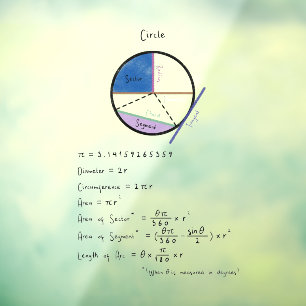 Circle
Sector
Radius
Chord
Segment
Tangent
π = 3.14159265359
Diameter = 2r
Circumference = 2πr
Area = πr²
Area of Sector* = θπ/360 × r²
Area of Segment* = (θπ/360 - sinθ/2) × r²
Length of Arc = θ × π/180 × r
*(when θ is measured in degrees)